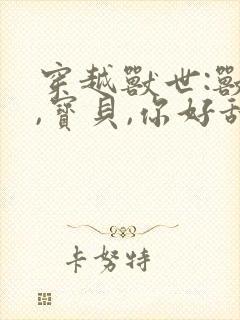 穿越獸世:獸
,寶貝,你好甜
卡努特